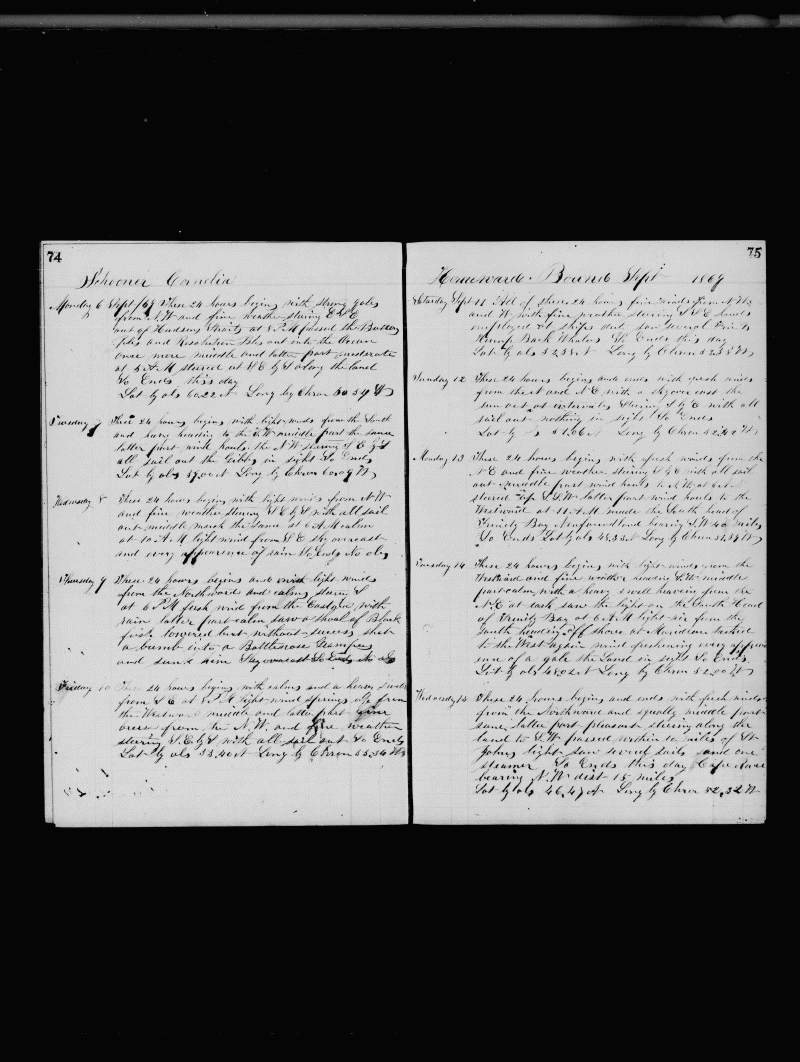 74
Schooner Cornelia
Monday 6 Sept /69 These 24 hours begins with strong gales
from N.W and fine weather stering E S E
out of Hudsons Straits at 8 P.M passed the Button
Isles and Resolution Isles out into the Ocean
once more middle and latter part moderate
at 5 A M stered at S E by S along the land
So Ends this day
Lat by obs 60.22 N Long by Chron 60 59 W
Tuesday 7 These 24 hours begins with light winds from the South
and heading to the middle part the same
latter part wind hauls the N W stering S E by S
all sail out the in sight So Ends
Lat by obs N Long by Chron W
Wednesday 8 These 24 hours begins with light winds from N W
and fine weather stering S E by S with all sail
out middle much the same at 6 A M calm
at 10 A M light wind from S E sky overcast
and every appearence of rain So Ends No obs
Thursday 9 These 24 hours begins and light winds
from the Northward and calms stern S
at 6 P M fresh wind from the Eastard with
rain latter part calm saw a shoal of Black
fish lowered but without success shot
a bumb into a Bottlenose Grampus
and sunk him Sky overcast So Ends No obs
Friday 10 These 24 hours begins with calms and a heavy swell
from S E at P M light wind springs up from
the Westward middle and latter part fine
breese from the N. W. and fine weather
stering S. E by S with all sail out So Ends
Lat by obs 53.40 N Long by Chron 55.34 W
75
Homeward Bound Sept 1869
Saturday Sept 11 All of these 24 hours fine winds from N.W.
and W with fine weather stering S S E hands
employed at ships duty saw several
Hump Back Whales So Ends this day
Lat by obs N Long by Chron W
Sunday 12 These 24 hours begins and ends with fresh winds
from the N and N E with a sky over cast the
sun out at intervals Stering S by E with all
sail out nothing in sight So Ends
Lat by obs N Long by Chron W
Monday 13 These 24 hours begins with fresh winds from the
N E and fine weather stering S by E with all sail
out middle part wind hauls to N W at
stered S S W latter part wind hauls to the
Westward at 11 A M made the South head of
Trinity Bay Newfoundland bearing S. W 40 miles
So Ends Lat by obs N Long by Chron W
Tuesday 14 These 24 hours begins with light winds from the
Westward and fine weather heading middle
part calm with a heavy swell heaving from the
N E at saw the light on the South Head
of Trinity Bay at 6 A M light air from the
South heading off shore at Meridian tacked
to the West again wind freshening every appear
ence of a gale the Land in sight So Ends
Lat by obs 48.02 N Long by Chron 52.00 W
Wednesday 15 These 24 hours begins and ends with fresh winds
from the Northward and squally middle part
same, latter part pleasant stering along the
land to S W passed within 10 miles of St
Johns light saw several sails and one
steamer So Ends this day Cape Race
bearing N. W dist 15 miles
Lat by obs 46.47 N Long by Chron 52.32 W